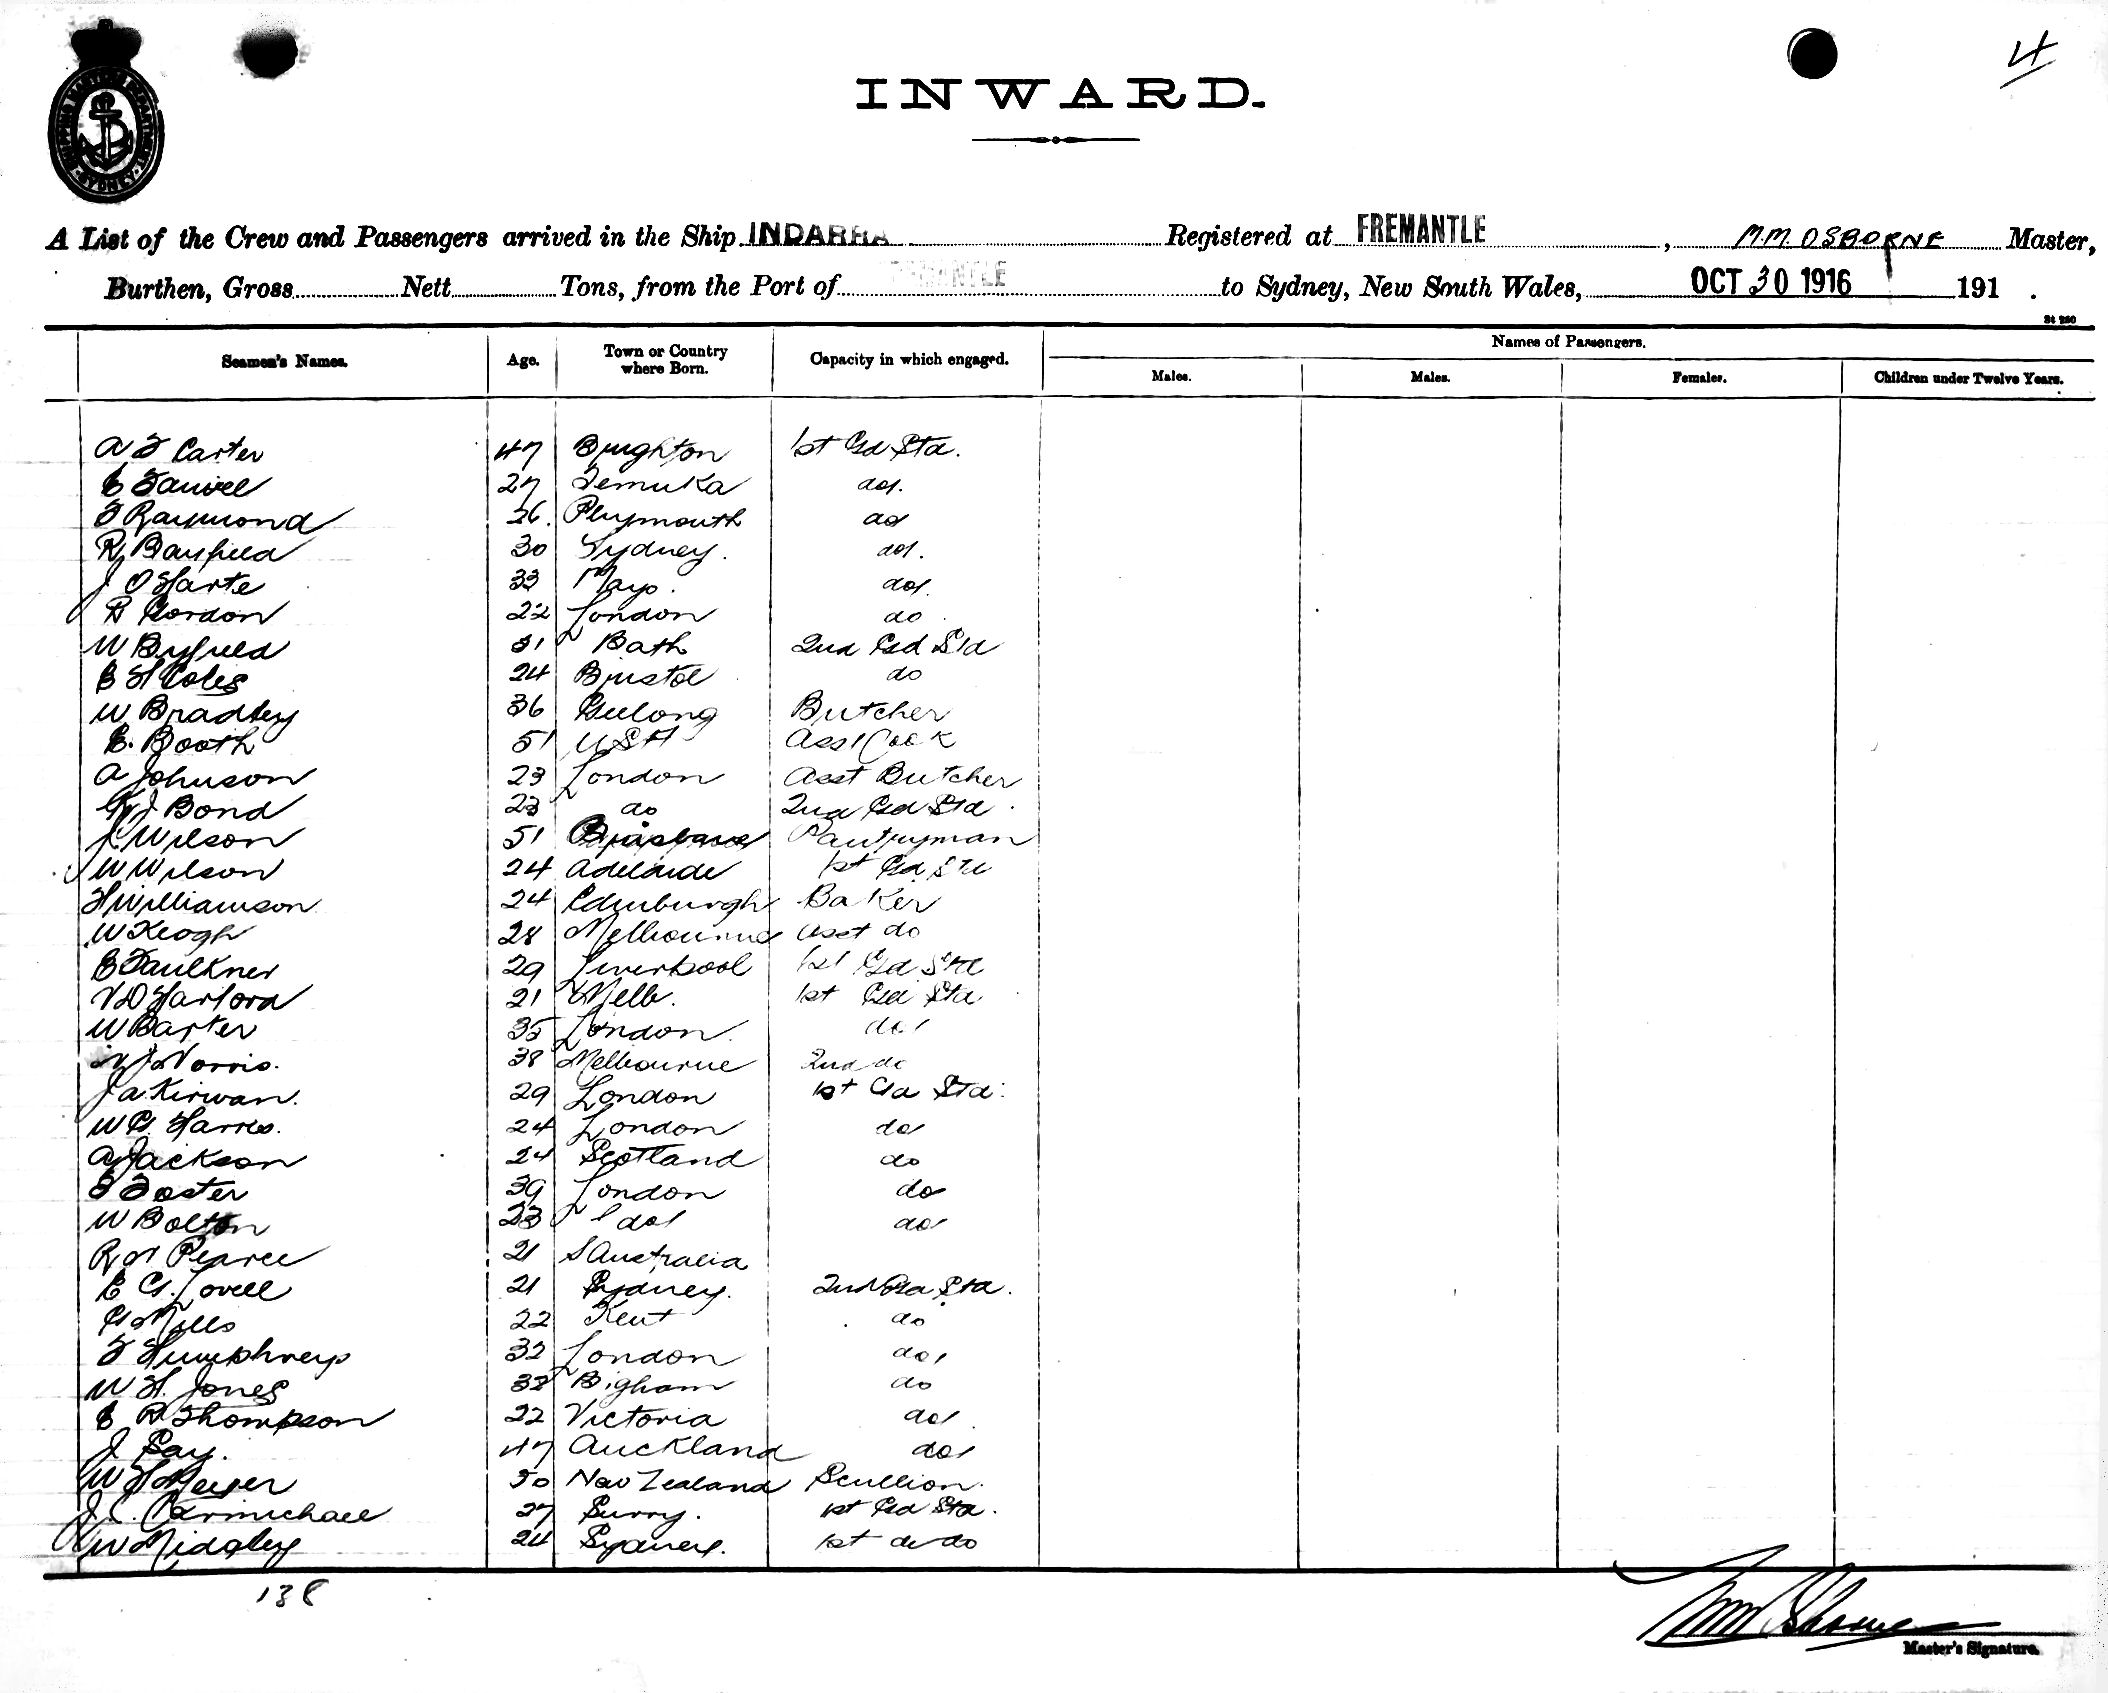 4
SHIPPING MASTER'S DEPARTMENT SYDNEY
INWARD.
A List of the Crew and Passengers arrived in the Ship INDARRA Registered at FREMANTLE, M.M. OSBORNE Master,
Burthen, Gross Nett Tons, from the Port of FREMANTLE to Sydney, New South Wales, OCT 30 1916 191 .
St 280
Names of Passengers.
Seamen's Names. Age. Town or Country where Born. Capacity in which engaged. Males. Males. Females. Children under Twelve Years.
A F Carter 47 Brighton 1st Gd Std.
E 27 Temuka do.
F Raymond 26. Plymouth do
R Bayfield 30 Sydney. do.
J O'Harte 33 Mayo. do.
R Gordon 22 London do
W Byfield 31 Bath 2nd Gd Std
E H Coles 24 Bristol do
W Bradley 36 Geelong Butcher
E. Booth 51 USA Asst Cook
A Johnson 23 London Asst Butcher
J Bond 23 do 2nd Gd Std.
J Wilson 51 Brisbane Pantryman
W Wilson 24 Adelaide 1st Gd Std
H Williamson 24 Edinburgh Baker
W Keogh 28 Melbourne Asst do
E Faulkner 29 Liverpool 1st Gd Std
V D Harford 21 Melb. 1st Gd Std
W Barter 35 London. do
J Norris. 38 Melbourne 2nd do
J A Kirwan. 29 London 1st Gd Std.
W G. Harris. 24 London do
A Jackson 24 Scotland do
F Foster 39 London do
W Bolton 23 do do
R H Pearce 21 S Australia
E G. Lovell 21 Sydney. 2nd Gd Std.
G Mills 22 Kent do
F Humphreys 32 London do
W H. Jones 32 B'gham do
E R Thompson 22 Victoria do
J Gay. 47 Auckland do
W H 50 New Zealand Scullion.
J C. Carmichael 27 Surry. 1st Gd Std.
W Midgley 24 Sydney. 1st do do
138
MM Osborne
Master's Signature.